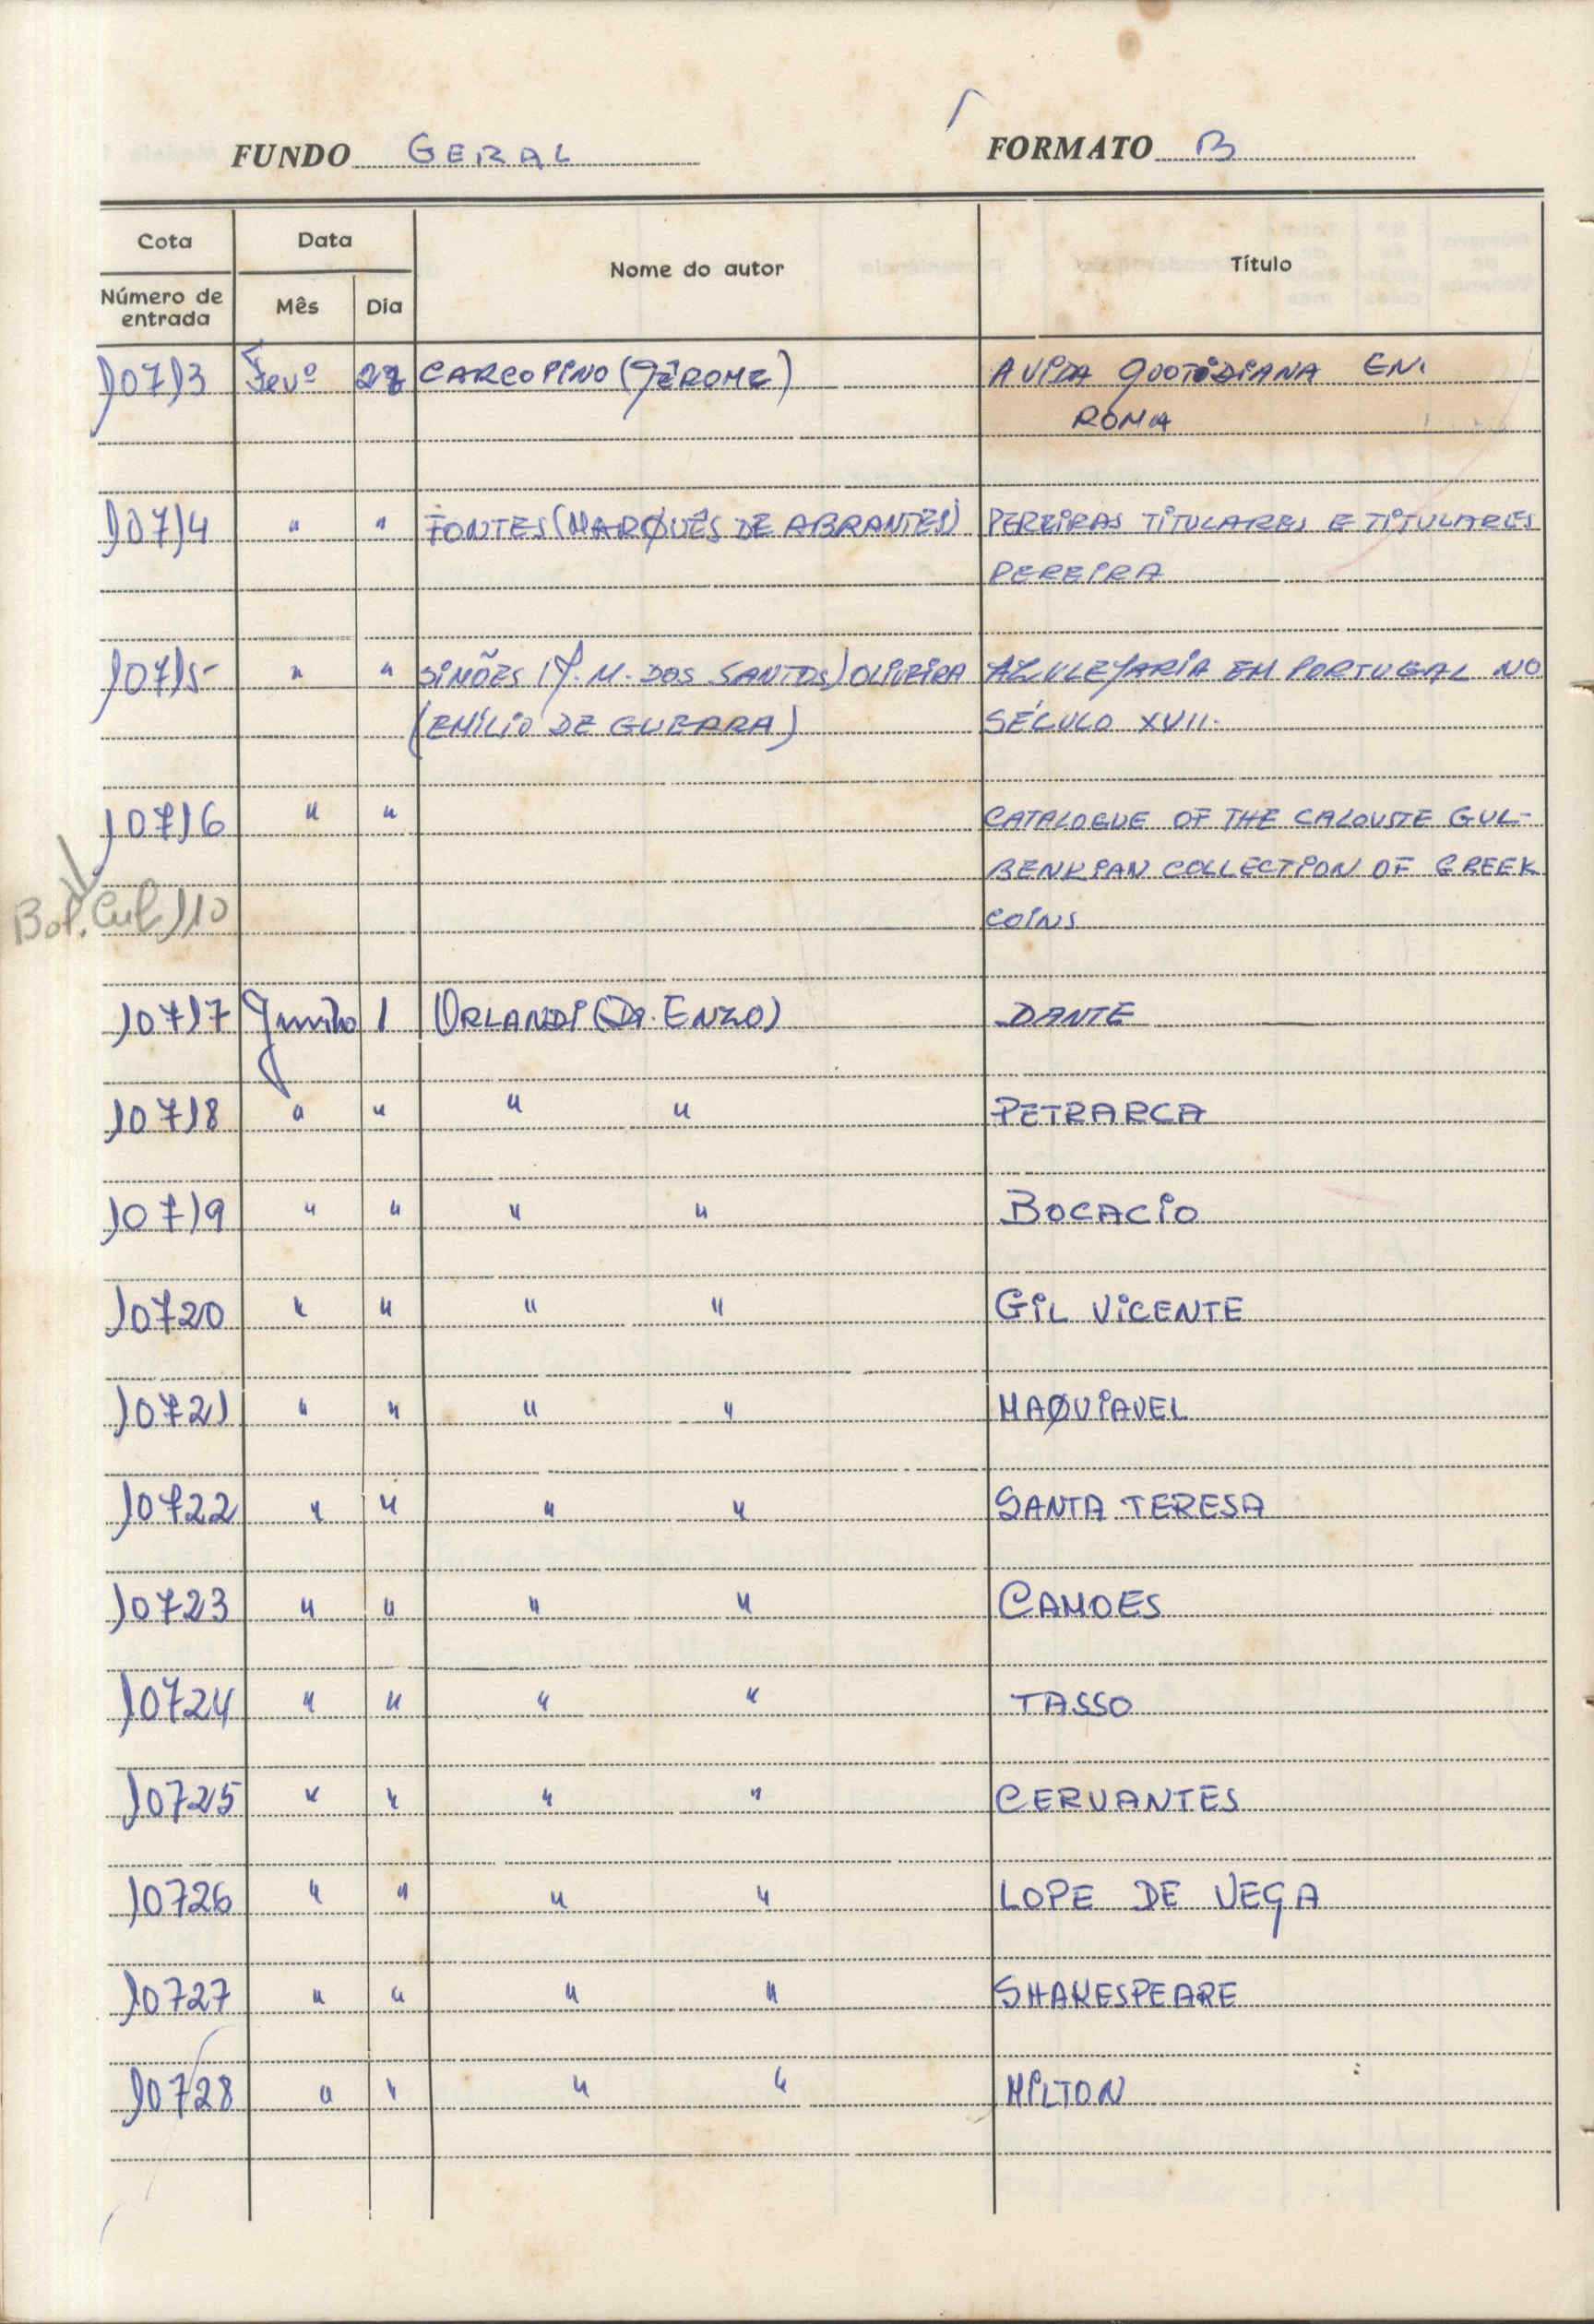 FUNDO GERAL FORMATO B
Cota Data Nome do autor Título
Número de entrada Mês Dia
10713 Fevº 27 CARCOPINO (JÉROME) A VIDA QUOTIDIANA EM
ROMA
10714 " " FONTES (MARQUÊS DE ABRANTES) PEREIRAS TITULARES E TITULARES
PEREIRA
10715 " " SIMÕES (J. M. DOS SANTOS) OLIVEIRA AZULEJARIA EM PORTUGAL NO
(EMÍLIO DE GUERARA) SÉCULO XVII.
10716 " " CATALOGUE OF THE CALOUSTE GUL-
BENKIAN COLLECTION OF GREEK
Bol. Cul 110 COINS
10717 Junho 1 ORLANDI (Dr. ENZO) DANTE
10718 " " " " PETRARCA
10719 " " " " BOCACIO
10720 " " " " GIL VICENTE
10721 " " " " MAQUIAVEL
10722 " " " " SANTA TERESA
10723 " " " " CAMOES
10724 " " " " TASSO
10725 " " " " CERVANTES
10726 " " " " LOPE DE VEGA
10727 " " " " SHAKESPEARE
10728 " " " " MILTON